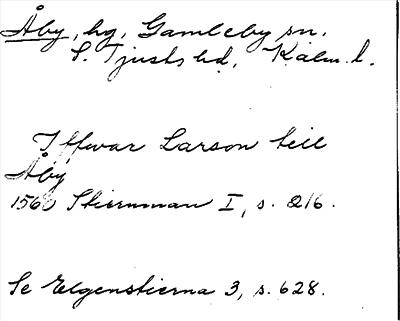 Åby, hg, Gamleby sn.
S. Tjusts hd, Kalm. l.
Iffwar Larson till
Åby
1560 Stiernman I, s. 216.
Se Elgenstierna 3, s. 628.